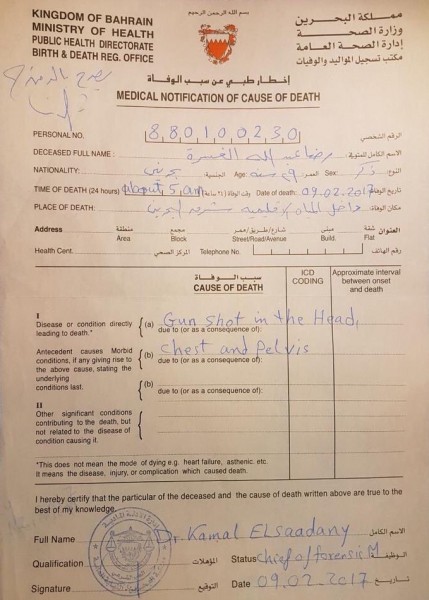 بسم الله الرحمن الرحيم
KINGDOM OF BAHRAIN
MINISTRY OF HEALTH
PUBLIC HEALTH DIRECTORATE
BIRTH & DEATH REG. OFFICE
مملكة البحرين
وزارة الصحة
إدارة الصحة العامة
مكتب تسجيل المواليد والوفيات
إخطار طبي عن سبب الوفاة
MEDICAL NOTIFICATION OF CAUSE OF DEATH
PERSONAL NO. 880100230 الرقم الشخصي
DECEASED FULL NAME : رضا عبدالله الغسرة الاسم الكامل للمتوفى:
NATIONALITY: بحريني الجنسية: Age: ٢٩ سنة العمر: Sex: ذكر النوع:
TIME OF DEATH (24 hours) about 5 am وقت الوفاة (٢٤ ساعة) Date of death: 09.02.2017 تاريخ الوفاة
PLACE OF DEATH: داخل المياه الإقليمية البحرين مكان الوفاة:
Address منطقة مجمع شارع/طريق/ممر مبنى شقة العنوان
Area Block Street/Road/Avenue Build. Flat
Health Cent. المركز الصحي Telephone No رقم الهاتف
سبب الوفاة
CAUSE OF DEATH
ICD CODING
Approximate interval between onset and death
I
Disease or condition directly leading to death.*
(a) Gun shot in the Head,
due to (or as a consequence of):
Antecedent causes Morbid conditions, if any giving rise to the above cause, stating the underlying conditions last.
(b) Chest and Pelvis
due to (or as a consequence of):
(b)
due to (or as a consequence of):
II
Other significant conditions contributing to the death, but not related to the disease of condition causing it.
*This does not mean the mode of dying e.g. heart failure, asthenic. etc.
It means the disease, injury, or complication which caused death.
I hereby certify that the particular of the deceased and the cause of death written above are true to the best of my knowledge.
Full Name Dr. Kamal ELsaadany الاسم الكامل
Qualification المؤهلات Status chief of forensic M الوظيفة
Signature التوقيع Date 09.02-2017 تاريخ